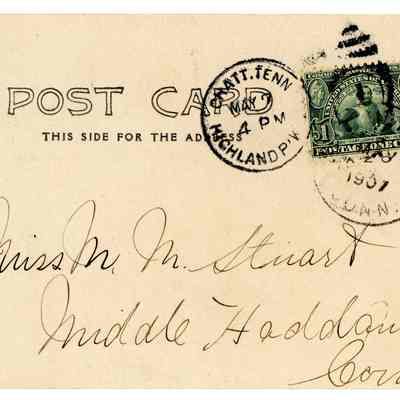 POST CARD
THIS SIDE FOR THE ADDRESS
CHATT. TENN
MAY 2
4 PM
HIGHLAND P'K
1907
CONN.
Miss M. M. Stuart
Middle Haddam
Con